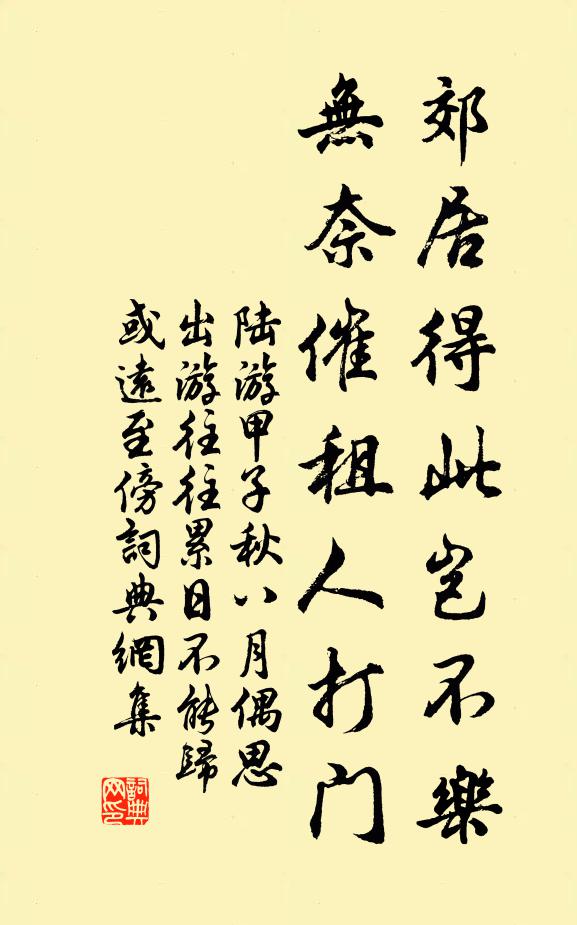 郊居得此豈不樂
無奈催租人打門
陆游甲子秋八月偶思
出游往往累日不能歸
或遠至傍詞典網集
詞典網印